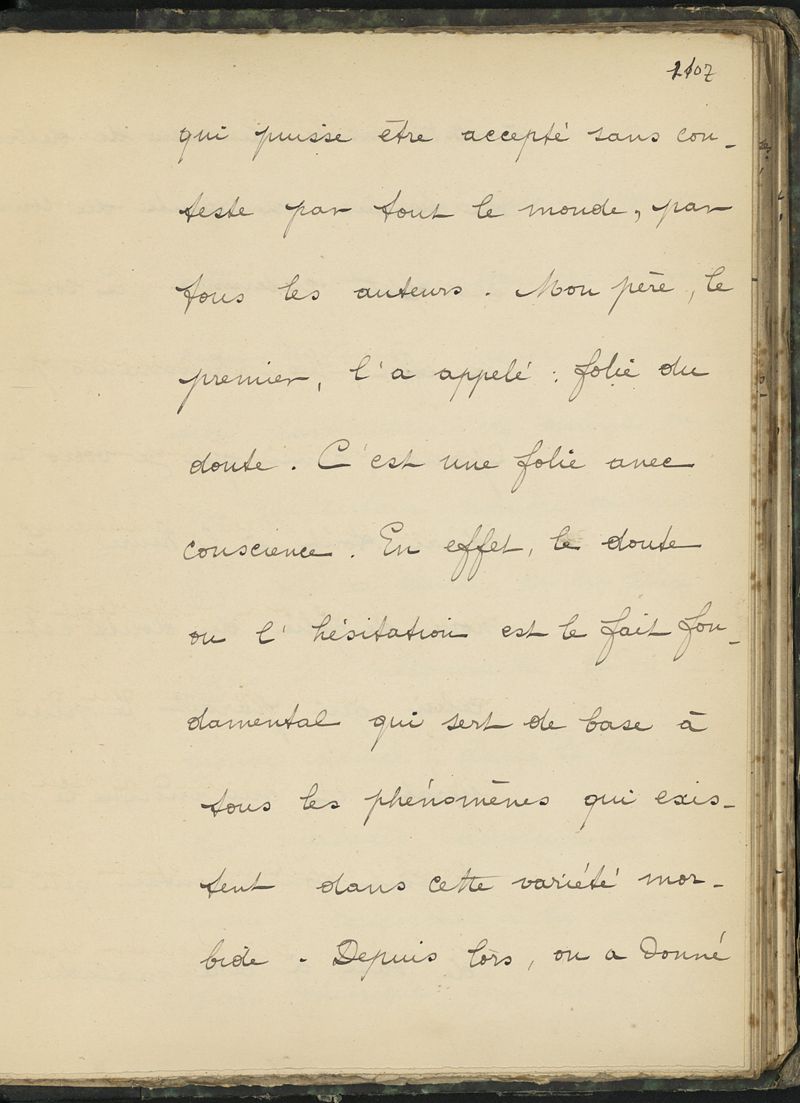 qui puisse être accepté sans con-
teste par tout le monde, par
tous les auteurs. Mon père, le
premier, l'a appelé : folie du
doute. C'est une folie avec
conscience. En effet, le doute
ou l'hésitation est le fait fon-
damental qui sert de base à
tous les phénomènes qui exis-
tent dans cette variété mor-
bide. Depuis lors, on a donné